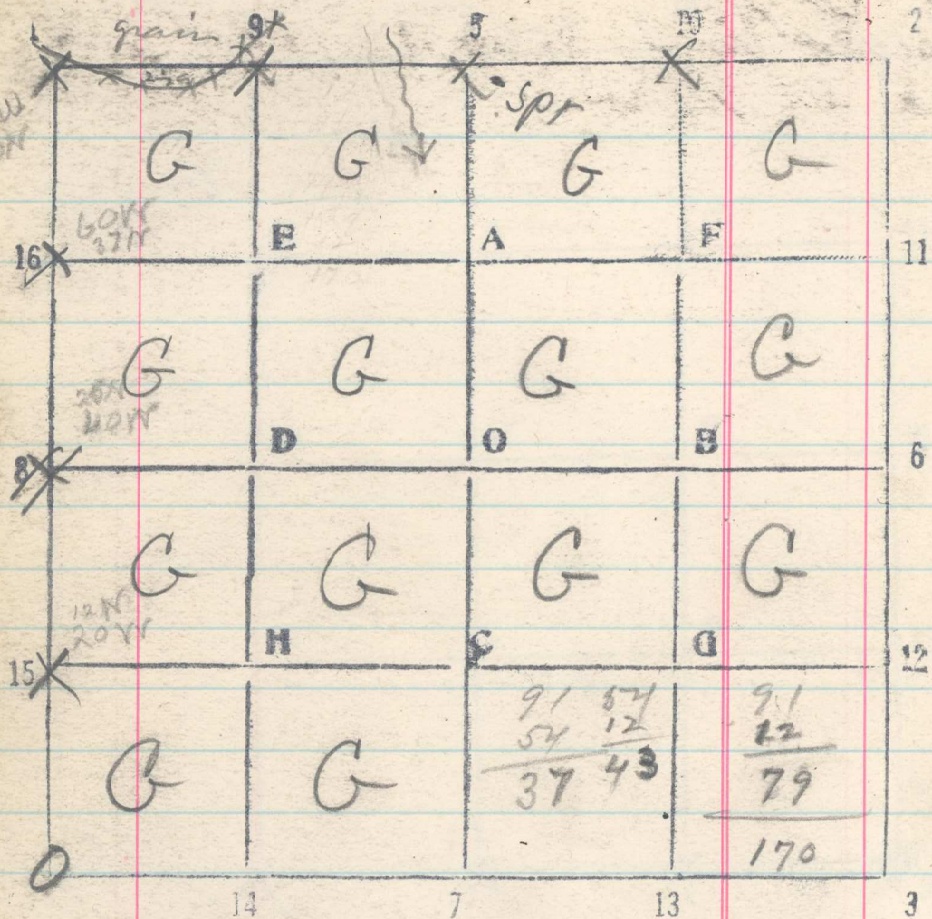 grain 9* 5 10 2
Spr
G G G G
60W
37N
E A F
16 11
G G G G
40W
D O B
8 6
G G G G
12N
20W
H C G
15 12
91 54 91
54 12 12
37 43 79
G G
170
14 7 13 3